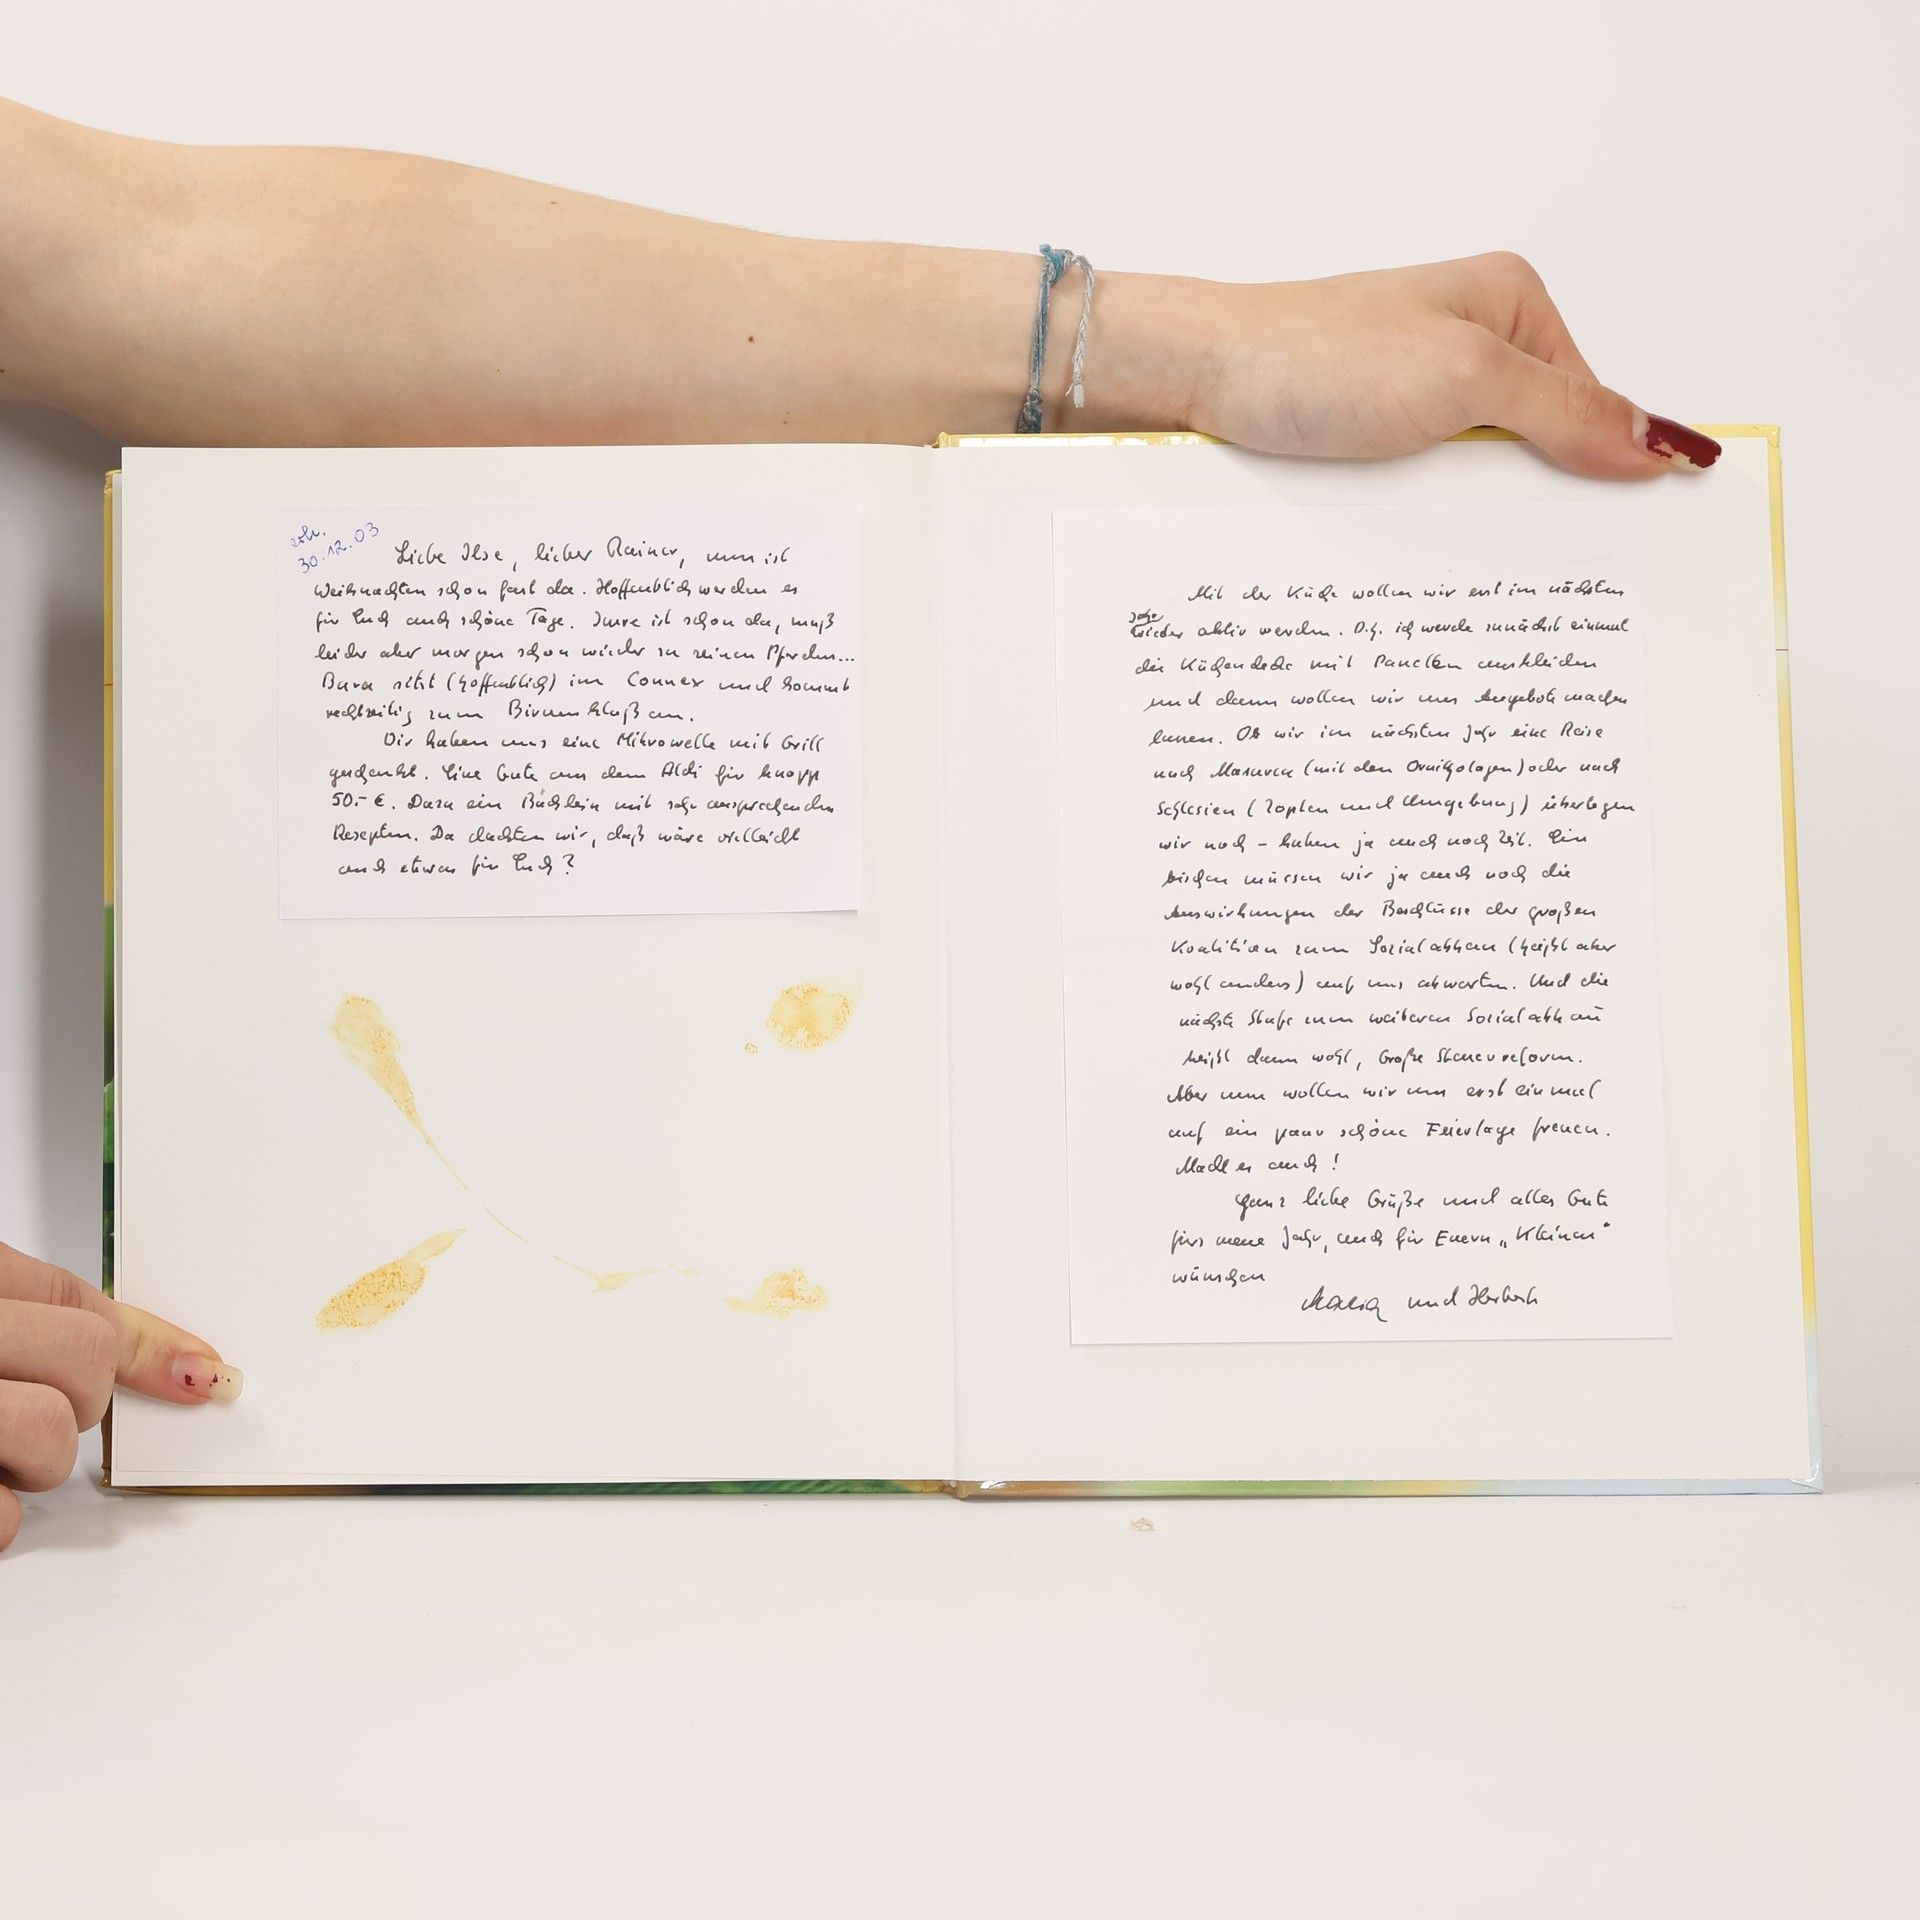 erh.
30.12.03
Liebe Ilse, lieber Rainer, nun ist
Weihnachten schon fast da. Hoffentlich werden es
für Euch auch schöne Tage. ist schon da, muß
leider aber morgen schon wieder zu seinen Pferden...
sitzt (hoffentlich) im Connex und kommt
rechtzeitig zum an.
Wir haben uns eine Mikrowelle mit Grill
geschenkt. Eine Gute aus dem Aldi für knapp
50.- €. Dazu ein Büchlein mit sehr ansprechenden
Rezepten. Da dachten wir, daß wäre vielleicht
auch etwas für Euch?
Mit der Küche wollen wir erst im nächsten
Jahr
wieder aktiv werden. D.h. ich werde zunächst einmal
die Küchendecke mit Panelen auskleiden
und dann wollen wir uns Angebote machen
lassen. Ob wir im nächsten Jahr eine Reise
nach Masuren (mit den Ornithologen) oder nach
Schlesien (Zopten und Umgebung) überlegen
wir noch - haben ja auch noch Zeit. Ein
bischen müssen wir ja auch noch die
Auswirkungen der Beschlüsse der großen
Koalition zum Sozialabbau (heißt aber
wohl anders) auf uns abwarten. Und die
nächste Stufe zum weiteren Sozialabbau
heißt dann wohl, Große Steuerreform.
Aber nun wollen wir uns erst einmal
auf ein paar schöne Feiertage freuen.
Macht es auch!
Ganz liebe Grüße und alles Gute
fürs neue Jahr, auch für Euern „Kleinen"
wünschen
Maria und Herbert